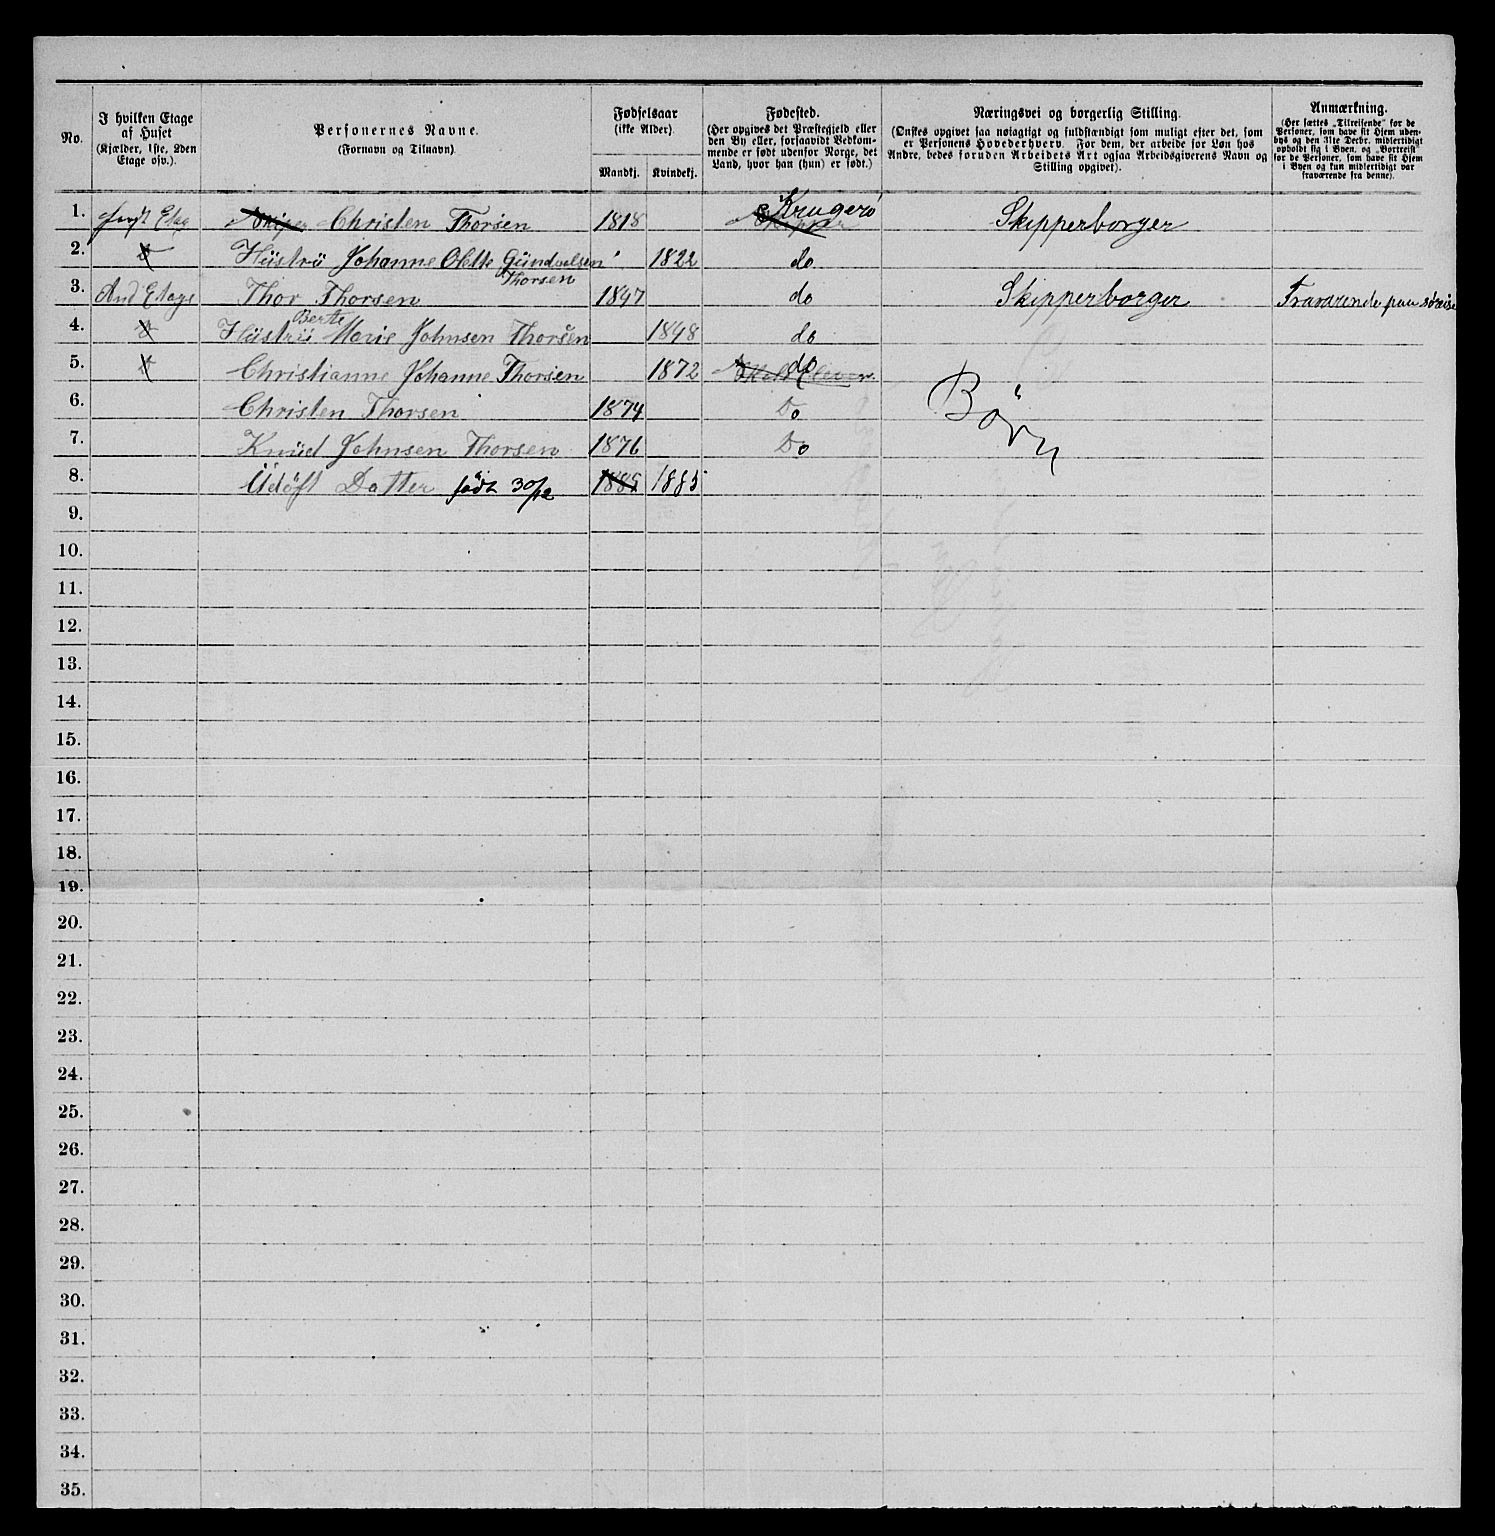 No.
I hvilken Etage
af Huset
(Kjælder, 1ste, 2den
Etage osv.).
Personernes Navne.
(Fornavn og Tilnavn).
Fødselsaar
(ikke Alder).
Mandkj.
Kvindekj.
Fødested.
(Her opgives det Præstegjeld eller
den By eller, forsaavidt Vedkom-
mende er født udenfor Norge, det
Land, hvor han (hun) er født.)
Næringsvei og borgerlig Stilling.
(Ønskes opgivet saa nøiagtigt og fuldstændigt som muligt efter det, som
er Personens Hovederhverv. For dem, der arbeide for Løn hos
Andre, bedes foruden Arbeidets Art ogsaa Arbeidsgiverens Navn og
Stilling opgivet).
Anmærkning.
(Her sættes „Tilreisende“ for de
Personer, som have sit Hjem uden-
bys og den 31te Decbr. midlertidigt
opholdt sig i Byen, og „Bortreist“
for de Personer, som have sit Hjem
i Byen og kun midlertidigt var
fraværende fra denne).
1. Etag Christen Thorsen 1818 Krugerö Skipperborger
2. Hüstrü Johanne Olette Gündvelsen Thorsen 1822 do
3. And Etage Thor Thorsen 1847 do Skipperborger Fraværende paa söreise
4. Hüstrü Berte Marie Johnsen Thorsen 1848 do
5. Christianne Johanne Thorsen 1872 do
6. Christen Thorsen 1874 Do Börn
7. Knüd Johnsen Thorsen 1876 Do
8. Üdöft Datter födt 30/12 1885 1885
9.
10.
11.
12.
13.
14.
15.
16.
17.
18.
19.
20.
21.
22.
23.
24.
25.
26.
27.
28.
29.
30.
31.
32.
33.
34.
35.